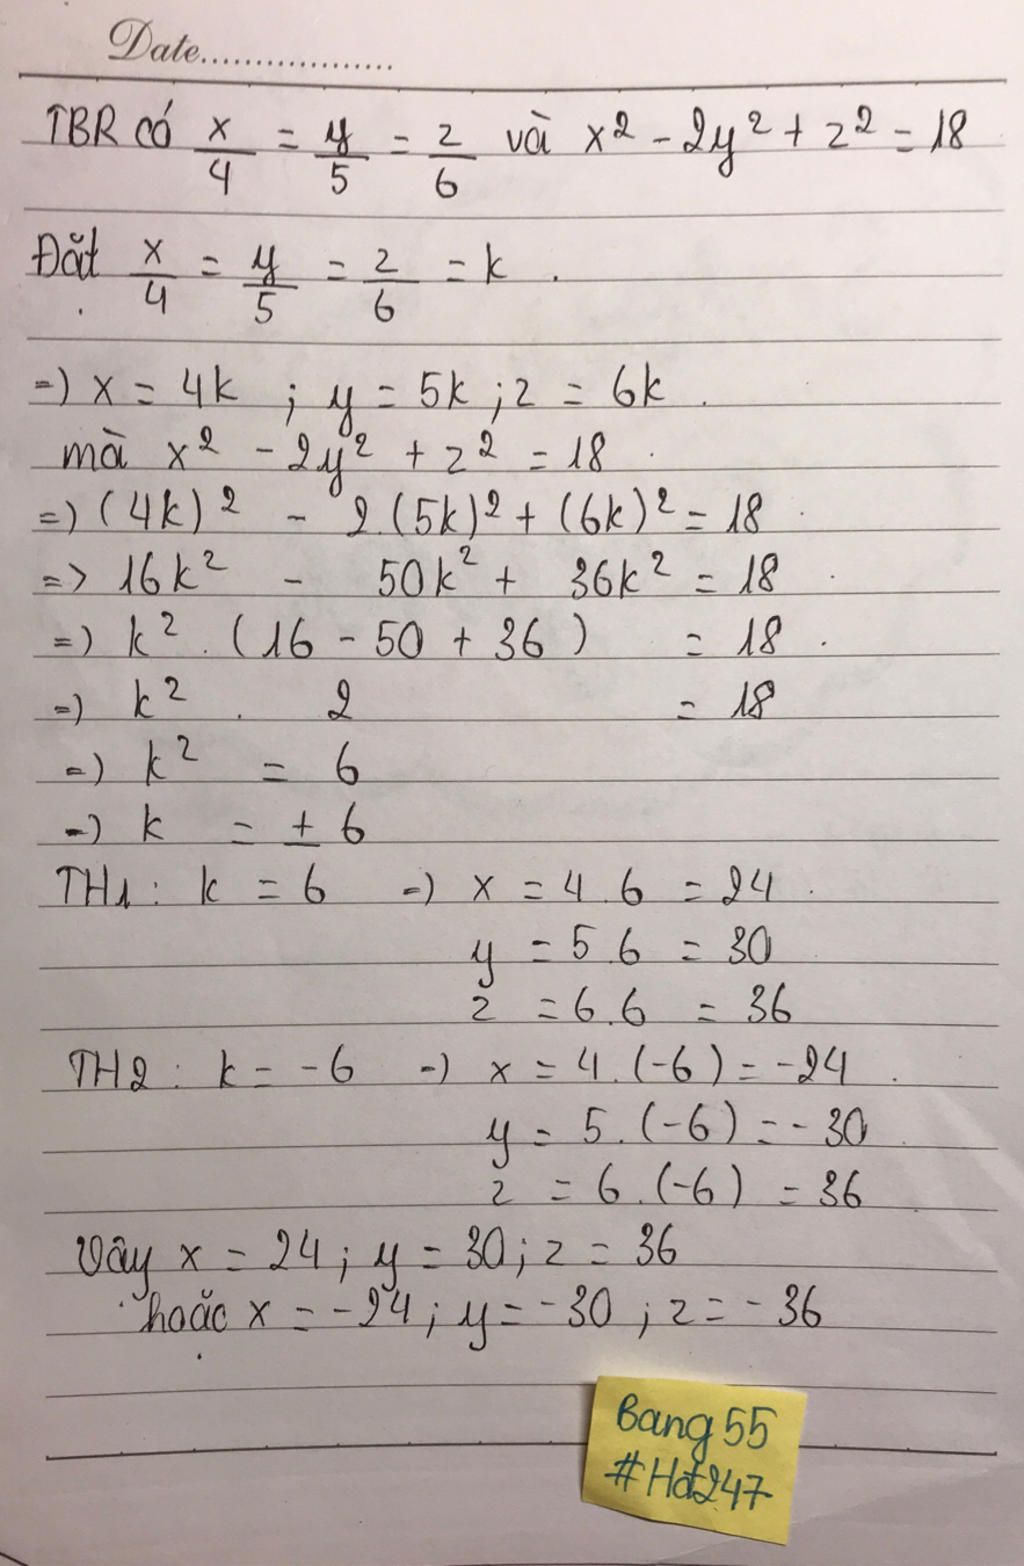 Date..................
TBR có x/4 = y/5 = z/6 và x² - 2y² + z² = 18
Đặt x/4 = y/5 = z/6 = k .
=) x = 4k ; y = 5k ; z = 6k .
mà x² - 2y² + z² = 18 .
=) (4k)² - 2.(5k)² + (6k)² = 18 .
=> 16k² - 50k² + 36k² = 18 .
=) k² . (16 - 50 + 36) = 18 .
=) k² . 2 = 18
=) k² = 6
=) k = ± 6
TH1 : k = 6 =) x = 4.6 = 24 .
y = 5.6 = 30
z = 6.6 = 36
TH2 : k = -6 =) x = 4.(-6) = -24 .
y = 5.(-6) = -30 .
z = 6.(-6) = 36
Vây x = 24 ; y = 30 ; z = 36
hoặc x = -24 ; y = -30 ; z = -36
Bang 55
#Hd247